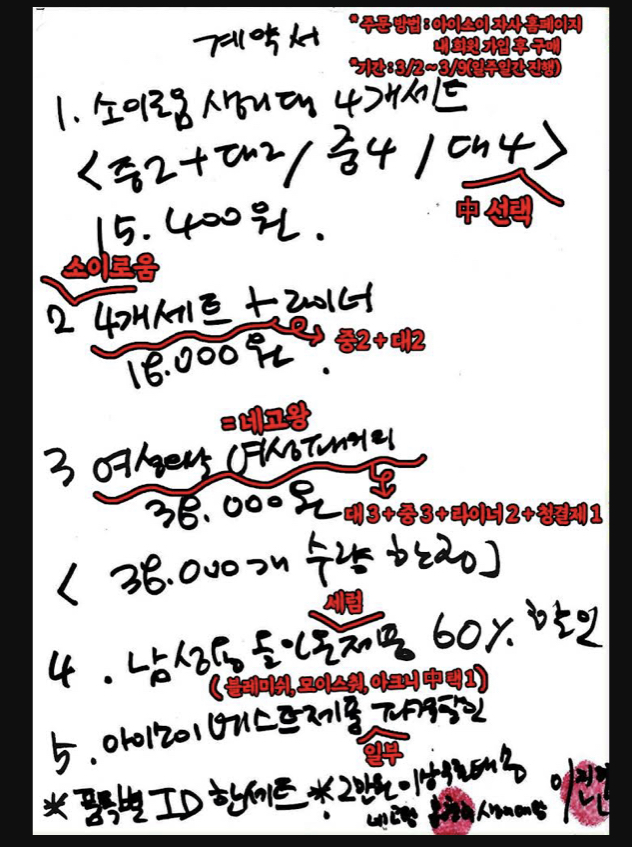 계약서
* 주문 방법 : 아이소이 자사 홈페이지
내 회원 가입 후 구매
*기간 : 3/2 ~ 3/9(일주일간 진행)
1. 소이로움 생리대 4개세트
<중2+대2/ 중4 / 대4>
中 선택
15.400원.
소이로움
2 4개세트 + 라이너
중2+대2
18.000원.
= 네고왕
3 여성의날
38.000원
대 3 + 중 3 + 라이너 2 + 청결제 1
< 38.000개 수량 한정]
세럼
4. 남성용 올인원제품 60% 할인
( 블레미쉬, 모이스춰, 아크니 中 택 1 )
5. 아이소이 베스트제품
일부
* 품목별 ID 한세트 * 2만원 이상
네고왕 생리대